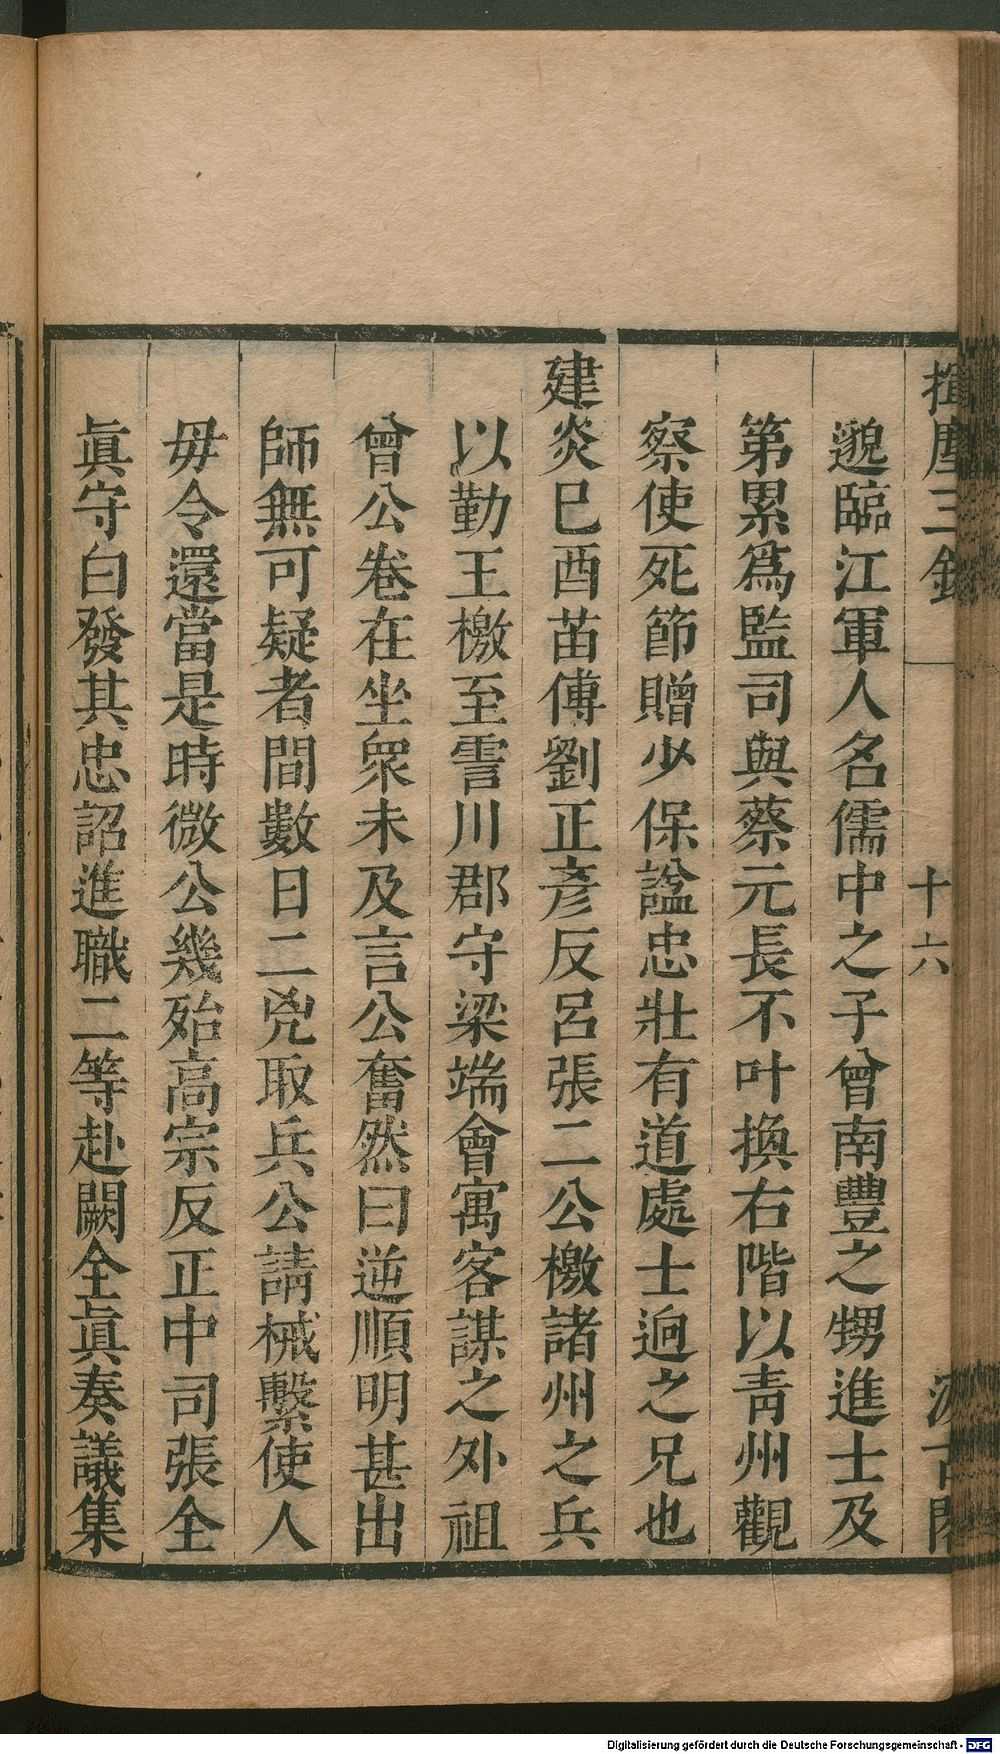 揮麈三錄
十六
汲古閣
邈臨江軍人名儒中之子曾南豐之甥進士及
第累爲監司與蔡元長不叶換右階以青州觀
察使死節贈少保諡忠壯有道處士迥之兄也
建炎巳酉苗傅劉正彥反呂張二公檄諸州之兵
以勤王檄至霅川郡守梁端會寓客謀之外祖
曾公卷在坐衆未及言公奮然曰逆順明甚出
師無可疑者間數日二兇取兵公請械繫使人
毋令還當是時微公幾殆高宗反正中司張全
眞守白發其忠詔進職二等赴闕全眞奏議集
Digitalisierung gefördert durch die Deutsche Forschungsgemeinschaft - DFG